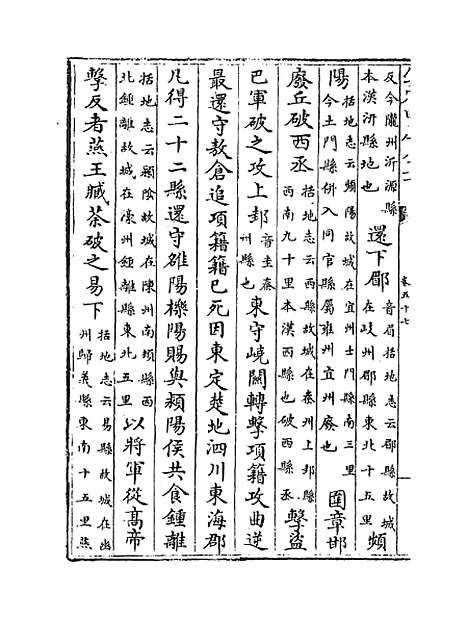 反今隴州沂源縣
本漢沂縣地也
還下郿
音眉括地志云郿縣故城
在岐州郿縣東北十五里
頻
陽
括地志云頻陽故城在宜州土門縣南三里
今土門縣併入同官縣屬雍州宜州廢也
圍章邯
廢丘破西丞
括地志云西縣故城在秦州上邽縣
西南九十里本漢西縣也破西縣丞
擊盜
巴軍破之攻上邽
音圭秦
州縣也
東守嶢關轉擊項籍攻曲逆
最還守敖倉追項籍籍已死因東定楚地泗川東海郡
凡得二十二縣還守雒陽櫟陽賜與潁陽侯共食鍾離
括地志云潁陰故城在陳州南頓縣西
北鍾離故城在濠州鍾離縣東北五里
以將軍從高帝
擊反者燕王臧荼破之易下
括地志云易縣故城在幽
州歸義縣東南十五里燕
卷五十七